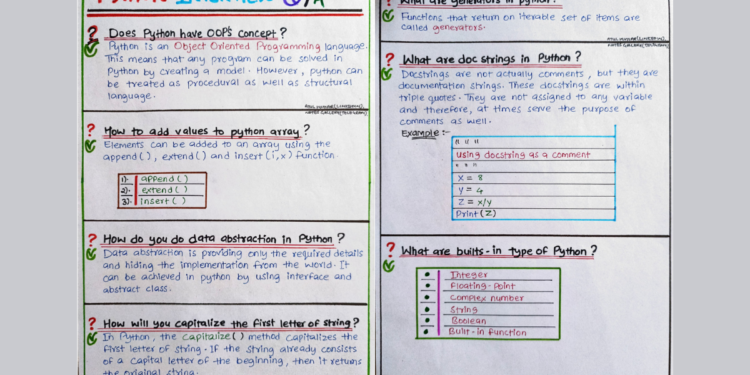 Does Python have OOPS Concept?
Python is an Object Oriented Programming language.
This means that any program can be solved in
Python by creating a model. However, python can
be treated as procedural as well as structural
language.
How to add values to python array?
Elements can be added to an array using the
append(), extend() and insert(i,x) function.
1). append()
2). extend()
3). insert()
How do you do data abstraction in Python?
Data abstraction is providing only the required details
and hiding the implementation from the world. It
can be achieved in python by using interface and
abstract class.
How will you capitalize the first letter of string?
In Python, the capitalize() method capitalizes the
first letter of string. If the string already consists
of a capital letter of the beginning, then it returns
the original string.
What are generators in python?
Functions that return on iterable set of items are
called generators.
What are doc strings in Python?
Docstrings are not actually comments, but they are
documentation strings. These docstrings are within
triple quotes. They are not assigned to any variable
and therefore, at times serve the purpose of
comments as well.
Example :-
" " "
using docstring as a comment
" " "
X = 8
y = 4
Z = x/y
Print(Z)
What are builts-in type of Python?
Integer
Floating-Point
Complex number
String
Boolean
Built-in function